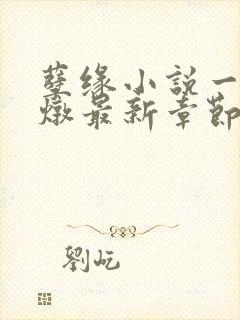 孽缘小説一
燉最新章節
劉屹